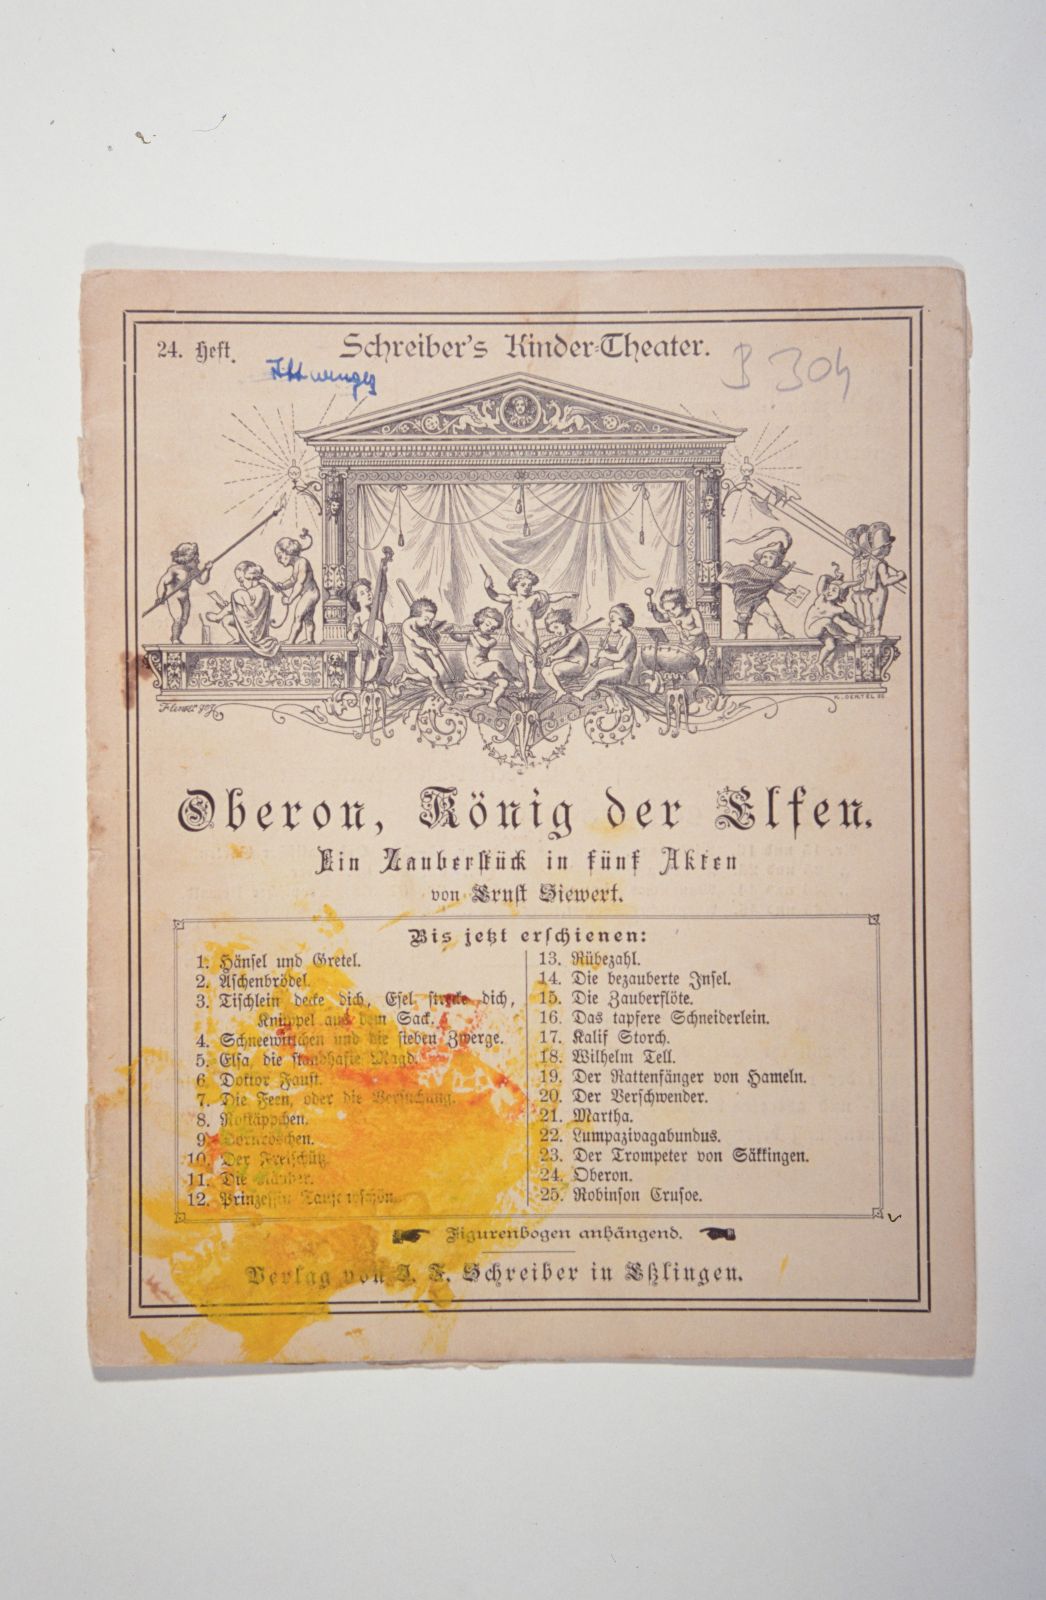 24. Heft.
Schreiber's Kinder-Theater.
B 304
K. OERTEL
Oberon, König der Elfen.
Ein Zauberstück in fünf Akten
von Ernst Siewert.
Bis jetzt erschienen:
1. Hänsel und Gretel.
2. Aschenbrödel.
3. Tischlein decke dich, Esel strecke dich,
Knüppel aus dem Sack.
4. Schneewittchen und die sieben Zwerge.
5. Elsa, die standhafte Magd.
6. Doktor Faust.
7. Die Feen, oder die Versuchung.
8. Rotkäppchen.
9. Dornröschen.
10. Der Freischütz.
11. Die Räuber.
12. Prinzessin Tausendschön.
13. Rübezahl.
14. Die bezauberte Insel.
15. Die Zauberflöte.
16. Das tapfere Schneiderlein.
17. Kalif Storch.
18. Wilhelm Tell.
19. Der Rattenfänger von Hameln.
20. Der Verschwender.
21. Martha.
22. Lumpazivagabundus.
23. Der Trompeter von Säkkingen.
24. Oberon.
25. Robinson Crusoe.
Figurenbogen anhängend.
Verlag von J. F. Schreiber in Eßlingen.